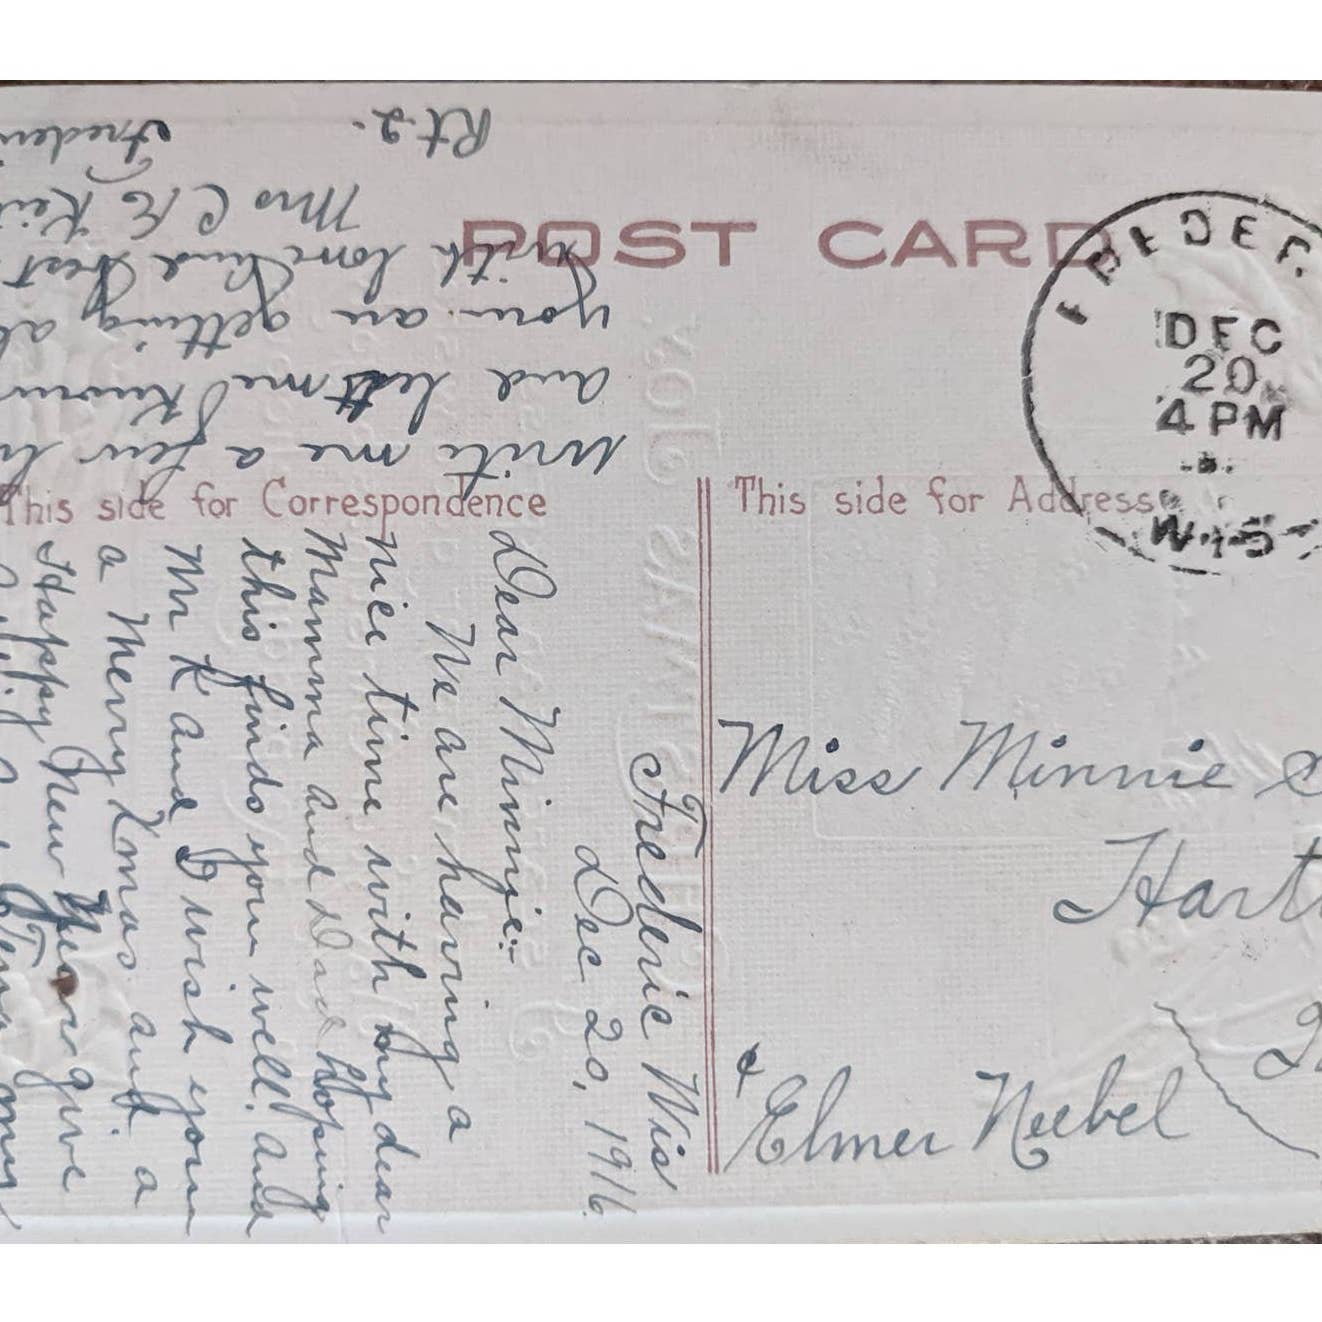 POST CARD
FREDER
DEC
20
4 PM
WIS
This side for Correspondence
This side for Address
Frederic Wis
Dec 20, 1916
Dear Minnie:
We are having a
nice time with my dear
Mamma and Dad Hoping
this finds you well. and
Mr K and I wish you
a Merry Xmas and a
Happy New Year give
my
write me a few
and let me know
you are getting
with love and best
Mrs C E
Rt. 2.
Miss Minnie
& Elmer Neebel